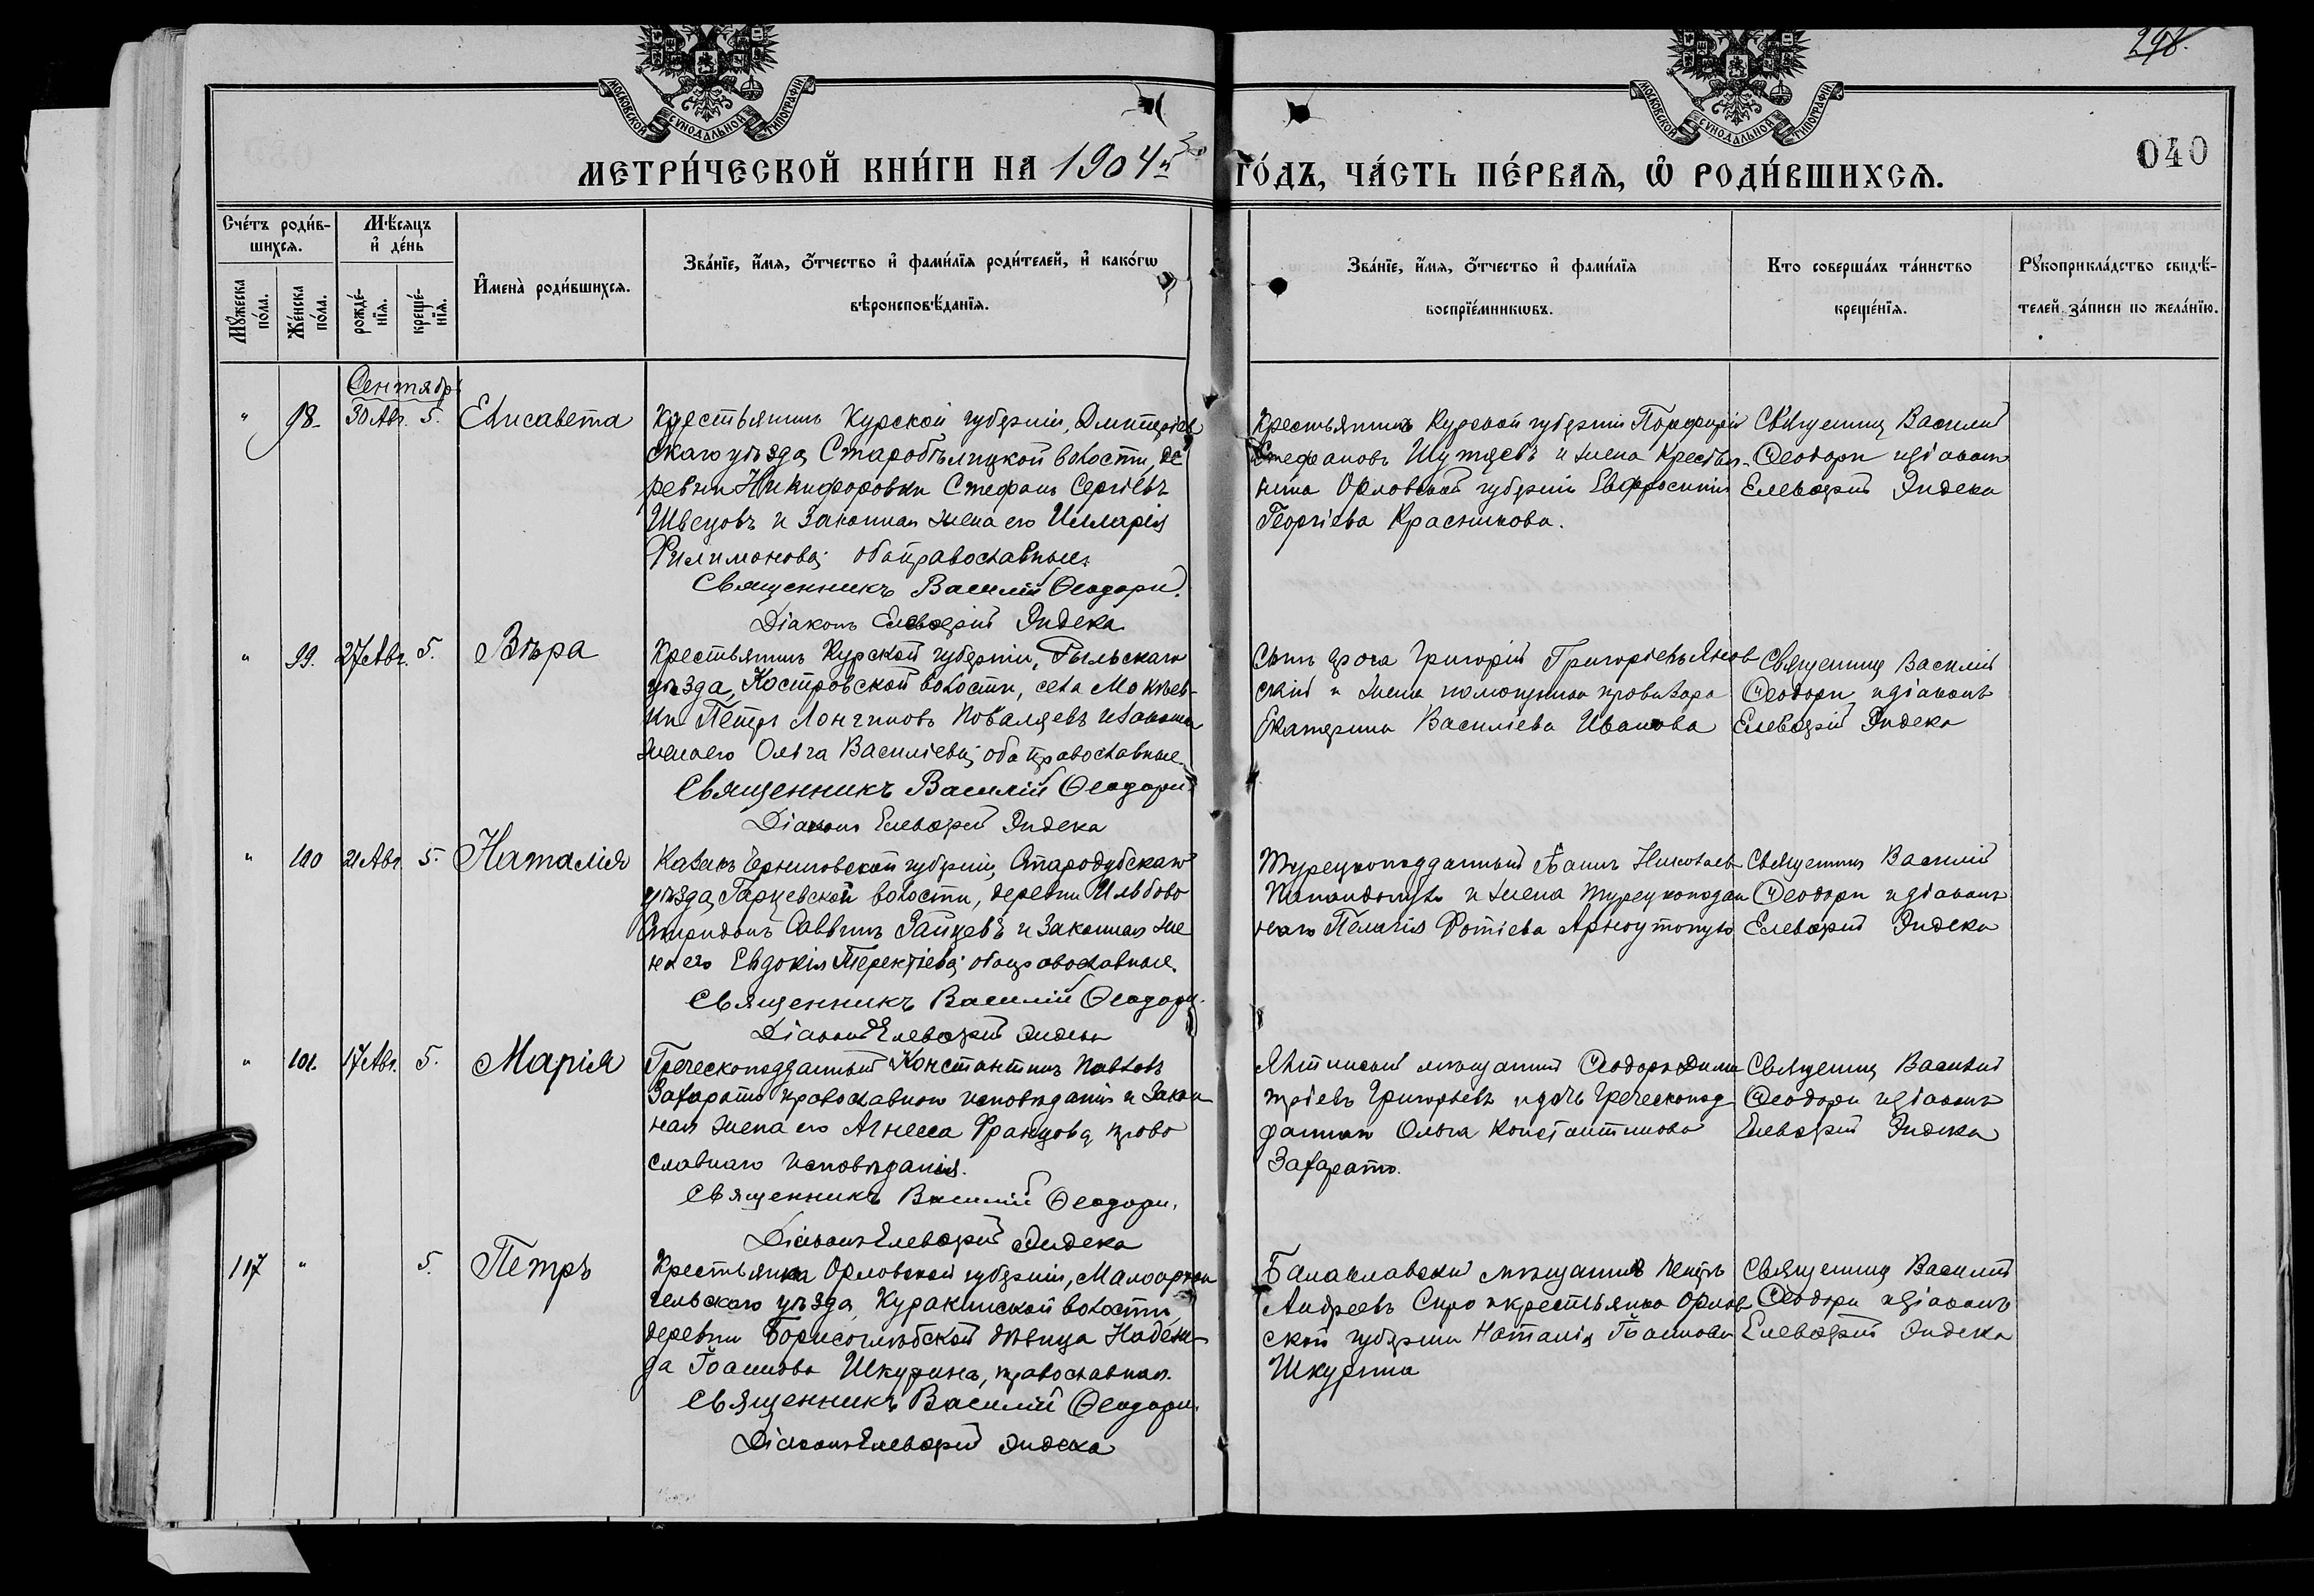 298.
МОСКОВСКОЙ СѴНОДАЛЬНОЙ ТИПОГРАФІИ
МОСКОВСКОЙ СѴНОДАЛЬНОЙ ТИПОГРАФІИ
040
МЕТРИ́ЧЕСКОЙ КНИ́ГИ НА 1904й ГО́ДЪ, ЧА́СТЬ ПЕ́РВАѦ, Ѽ РОДИ́ВШИХСѦ.
Сче́тъ роди́в-
шихсѧ.
Мѣ́сѧцъ
и҆ де́нь
Мꙋ́жеска
по́ла.
Же́нска
по́ла.
рожде́-
нїѧ.
креще́-
нїѧ.
И҆мена̀ роди́вшихсѧ.
Зва́нїе, и҆́мѧ, ѻ҆́тчество и҆ фами́лїѧ роди́телей, и҆ како́гѡ
вѣроисповѣ́данїѧ.
Зва́нїе, и҆́мѧ, ѻ҆́тчество и҆ фами́лїѧ
воспрїе́мникѡвъ.
Кто соверша́лъ та́инство
креще́нїѧ.
Рꙋкоприкла́дство свидѣ́-
телей за́писи по жела́нїю.
Сентябрь
" 98. 30 Авг. 5. Елисавета
Крестьянинъ Курской губерніи, Дмитріев
скаго уѣзда, Старобѣлицкой волости, де
ревни Никифоровки Стефанъ Сергіевъ
Швецовъ и законная жена его Илларія
Филимонова; оба православные.
Священникъ Василій Ѳеодори.
Діаконъ Елевѳерій Эндека
Крестьянинъ Курской губерніи Порфирій
Стефановъ и жена крестья-
нина Орловской губерніи Евфросинія
Георгіева Красникова.
Священникъ Василій
Ѳеодори и діаконъ
Елевѳерій Эндека
" 99. 27 Авг. 5. Вѣра
Крестьянинъ Курской губерніи, Рыльскаго
уѣзда, Костровской волости, села Мокѣев-
ки Петръ Лонгиновъ Поваляевъ и законная
жена его Ольга Василіева; оба православные.
Священникъ Василій Ѳеодори
Діаконъ Елевѳерій Эндека
Сынъ врача Григорій Григоріевъ Янов
скій и жена помощника провизора
Екатерина Василіева Иванова
Священникъ Василій
Ѳеодори и діаконъ
Елевѳерій Эндека
" 100 21 Авг. 5. Наталія
Казакъ Черниговской губерніи, Стародубскаго
уѣзда, Гарцевской волости, деревни Ильбово
Спиридонъ Саввинъ Зайцевъ и законная же
на его Евдокія Терентіева; оба православные.
Священникъ Василій Ѳеодори.
Діаконъ Елевѳерій Эндека
Турецкоподданный Іоаннъ Николаевъ
и жена турецкоподдан
наго Пелагія Фотіева Арноутопуло
Священникъ Василій
Ѳеодори и діаконъ
Елевѳерій Эндека
" 101. 17 Авг. 5. Марія
Греческоподданный Константинъ Павловъ
Зафарато православнаго исповѣданія и закон
ная жена его Агнесса Францова, право
славнаго исповѣданія.
Священникъ Василій Ѳеодори.
Діаконъ Елевѳерій Эндека
Ялтинскій мѣщанинъ Ѳеодоръ Дими
тріевъ Григорьевъ и дочь греческопод
даннаго Ольга Константинова
Зафарато.
Священникъ Василій
Ѳеодори и діаконъ
Елевѳерій Эндека
117 " 5. Петръ
Крестьянка Орловской губерніи, Малоархан
гельскаго уѣзда, Куракинской волости
деревни Борисоглѣбской дѣвица Надеж-
да Іоаннова Шкурина, православная.
Священникъ Василій Ѳеодори.
Діаконъ Елевѳерій Эндека
Балаклавскій мѣщанинъ Петръ
Андреевъ Спиро и крестьянка Орлов
ской губерніи Наталія Іоаннова
Шкурина
Священникъ Василій
Ѳеодори и діаконъ
Елевѳерій Эндека